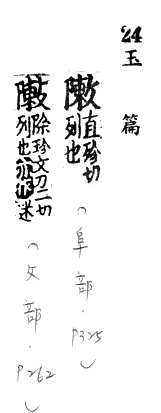 24 玉篇
敶 直珍切
列也
(阜部.P325)
敶 除珍丈刃二切
列也亦
(攵部.P262)